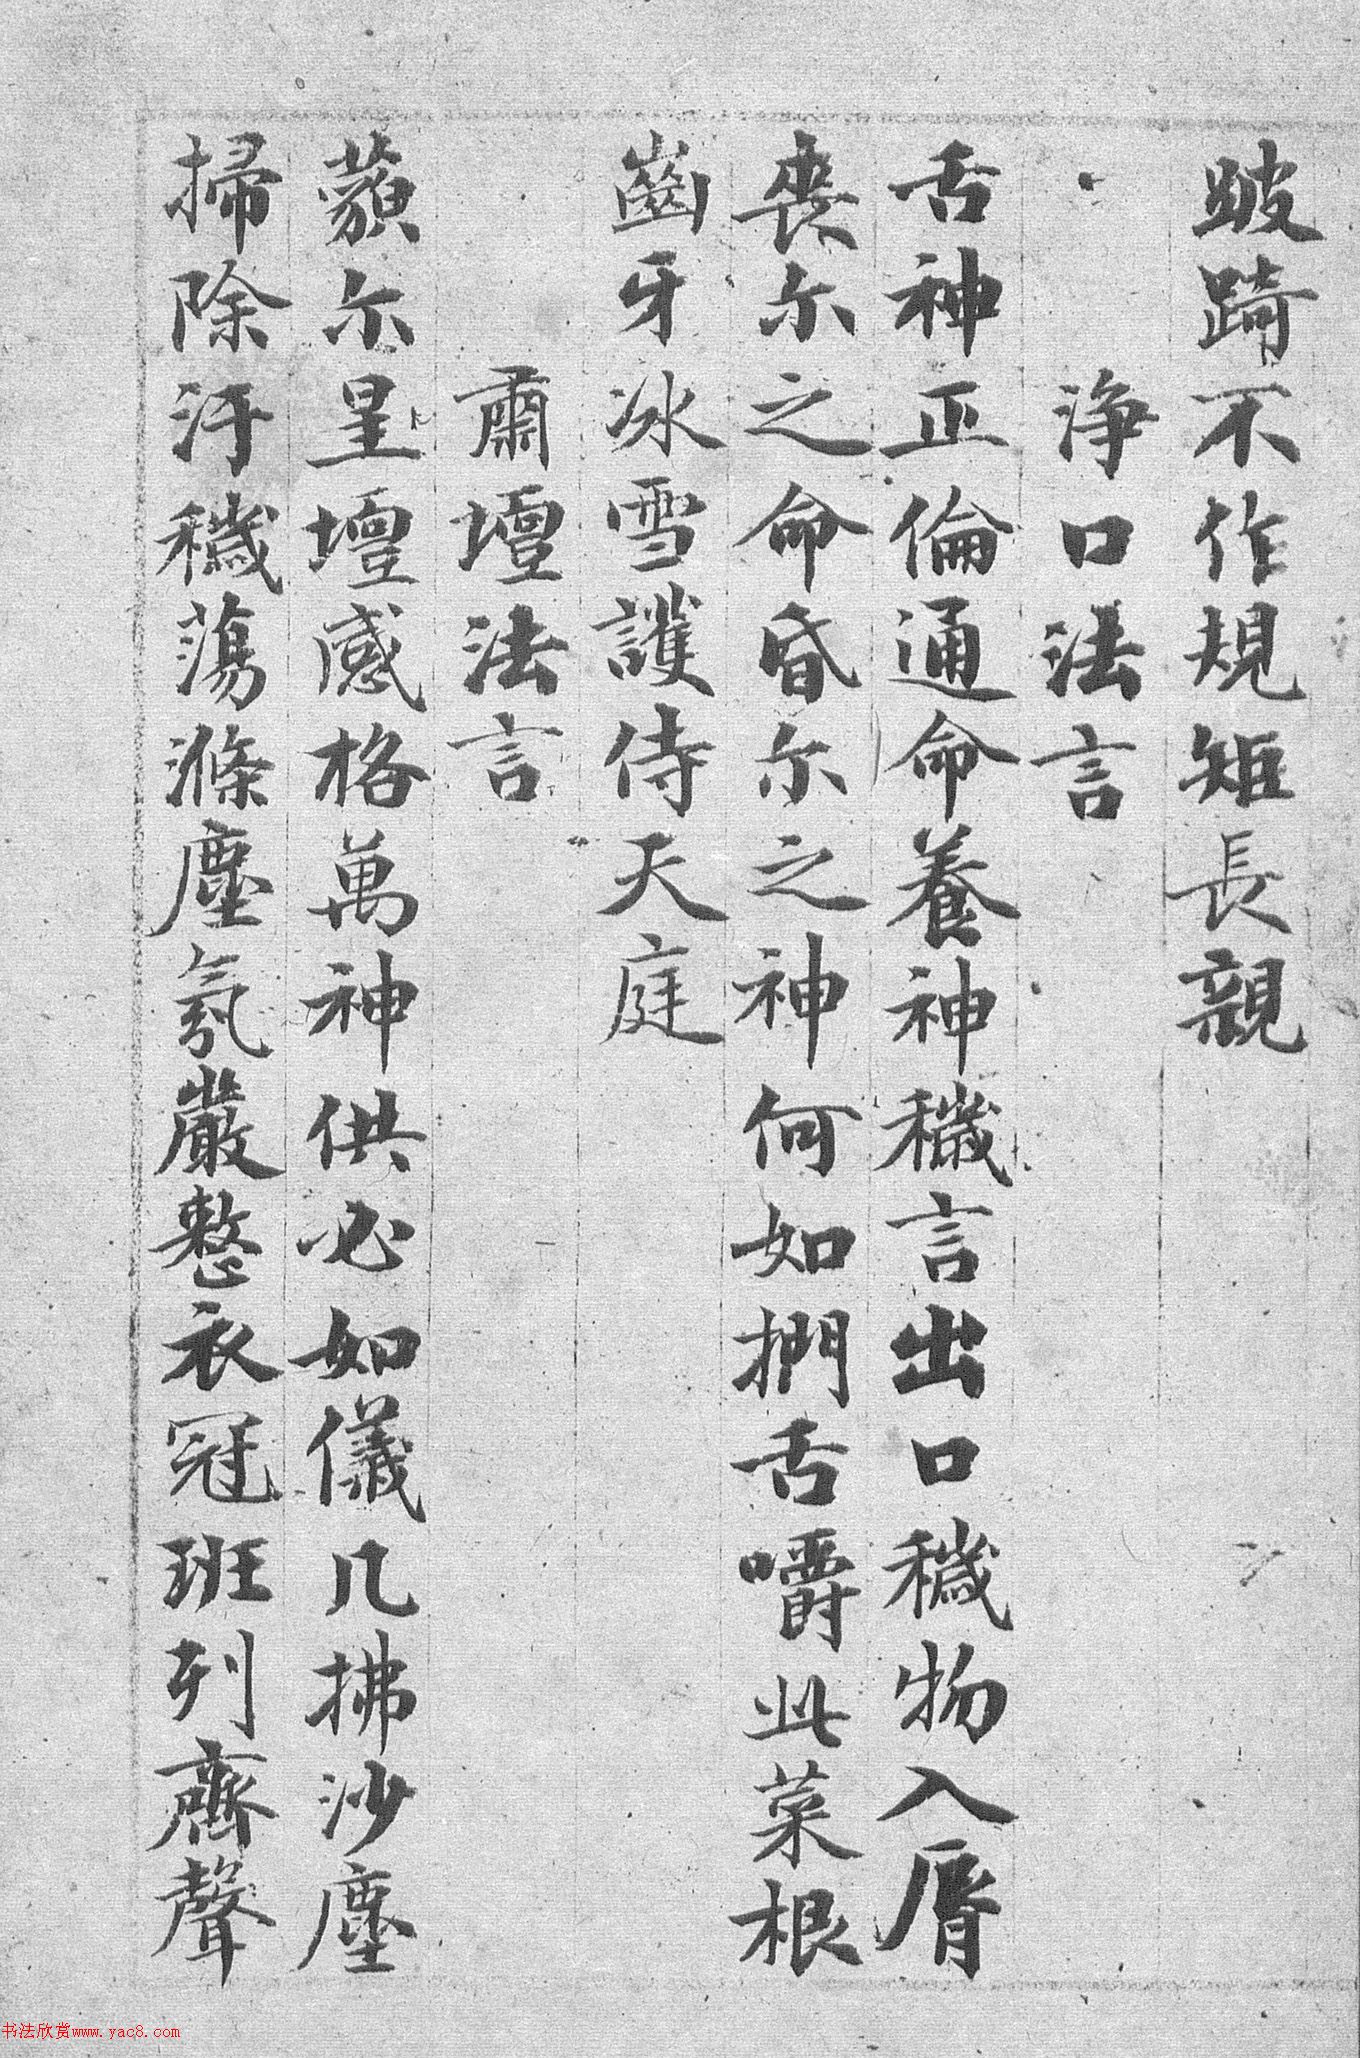 跛踦不作規矩長親
淨口法言
舌神正倫通命養神穢言出口穢物入脣
喪尔之命昏尔之神何如捫舌嚼此菜根
齒牙冰雪護侍天庭
肅壇法言
藐尔呈壇感格萬神供必如儀几拂沙塵
掃除汙穢蕩滌塵氛嚴整衣冠班列齊聲
书法欣赏www.yac8.com